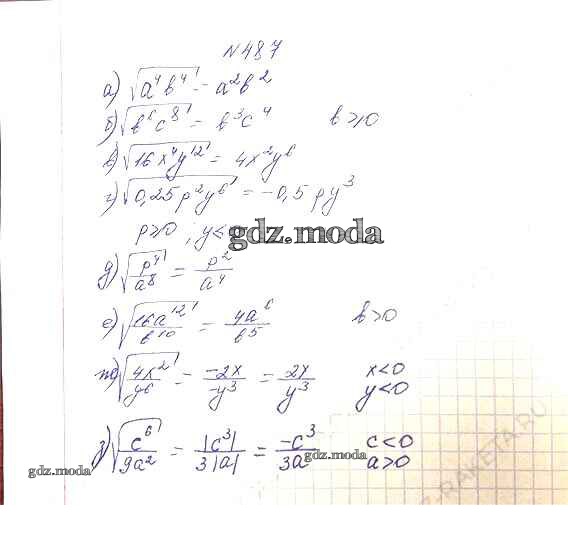 N 487
а) √a⁴b⁴ = a²b²
б) √b⁶c⁸ = b³c⁴ b≥0
в) √16x⁴y¹² = 4x²y⁶
г) √0,25p²y⁶ = -0,5py³
p≥0, y<
gdz.moda
д) √p⁴/a⁸ = p²/a⁴
е) √16a¹²/b¹⁰ = 4a⁶/b⁵ b>0
ж) √4x²/y⁶ = -2x/-y³ = 2x/y³ x<0
y<0
з) √c⁶/9a² = |c³|/3|a| = -c³/3a c<0
a>0
gdz.moda
gdz.moda
Z-RAKETA.RU